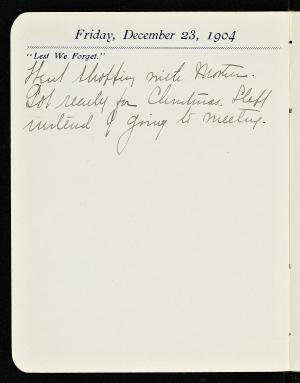 Friday, December 23, 1904
"Lest We Forget."
Went shopping with Mother.
Got ready for Christmas. Slept
instead of going to meeting.